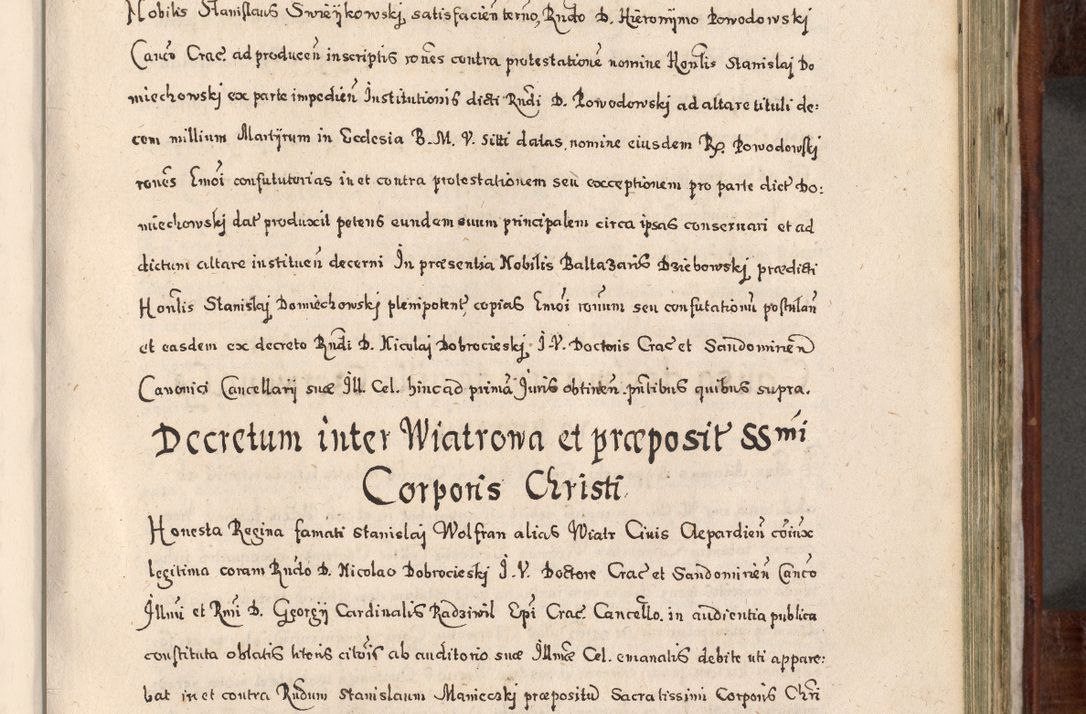 Nobilis Stanislaus Swieÿkowskj satisfacień termo, Rńdo D. Hieronÿmo Powodowskj
Canco Crac. ad produceń inscriptis rones contra protestatione nomine Honlis Stanislaj Do
miechowskj ex parte impedień Institutionis dicti Rndi D. Powodowskj ad altare tituli de:
cem millium Martÿrum in Ecclesia B. M. V. Sitti datas, nomine eiusdem R. Powodowskj
rones Emoi confututorias in et contra protestationem seu exceptionem pro parte dict Do:
miechowskj dat produxit petens eundem suum principalem circa ipsas conseruari et ad
dictum altare institueń decerni In præsentia Nobilis Baltazaris Dziebowskj prædicti
Honlis Stanislaj Domiechowskj plenipotent, copias Emoi ronum seu confutationu postulań
et easdem ex decreto Rndi D. Nicolaj Dobrocieskj I. V. Doctoris Crac et Sandomirień
Canonici Cancellarij suæ Ill. Cel. hinc ad prima Iuris obtineń. pntibus quibus supra.
Decretum inter Wiatrowa et præposit SSmi
Corporis Christi
Honesta Regina famati Stanislaj Wolfran alias Wiatr Ciuis Clepardień coiux
legitima coram Rndo D. Nicolao Dobrocieskj I. V. Doctore Crac et Sandomirień Canco
Illmi et Rmi D. Georgij Cardinalis Radziwil Epi Crac. Cancello. in audientia publica
constituta oblatis literis citois ab auditorio suæ Illmæ Cel. emanatis debite uti appare:
bat in et contra Rndum Stanislaum Manieczkj præpositu Sacratissimi Corporis Chri